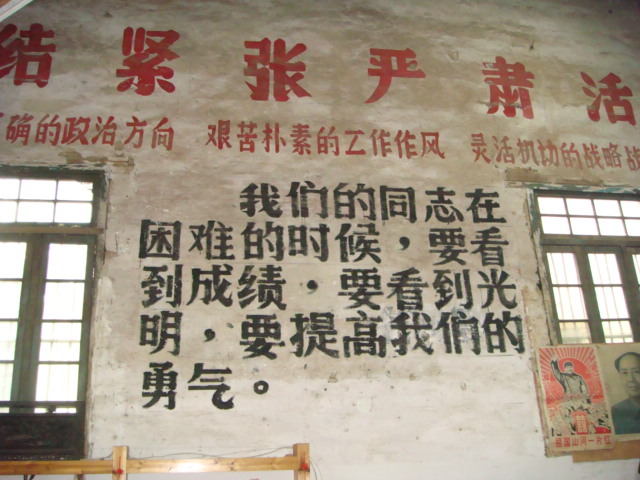 结 紧 张 严 肃 活
确的政治方向 艰苦朴素的工作作风 灵活机动的战略战
我们的同志在
困难的时候，要看
到成绩，要看到光
明，要提高我们的
勇气。
祖国山河一片红